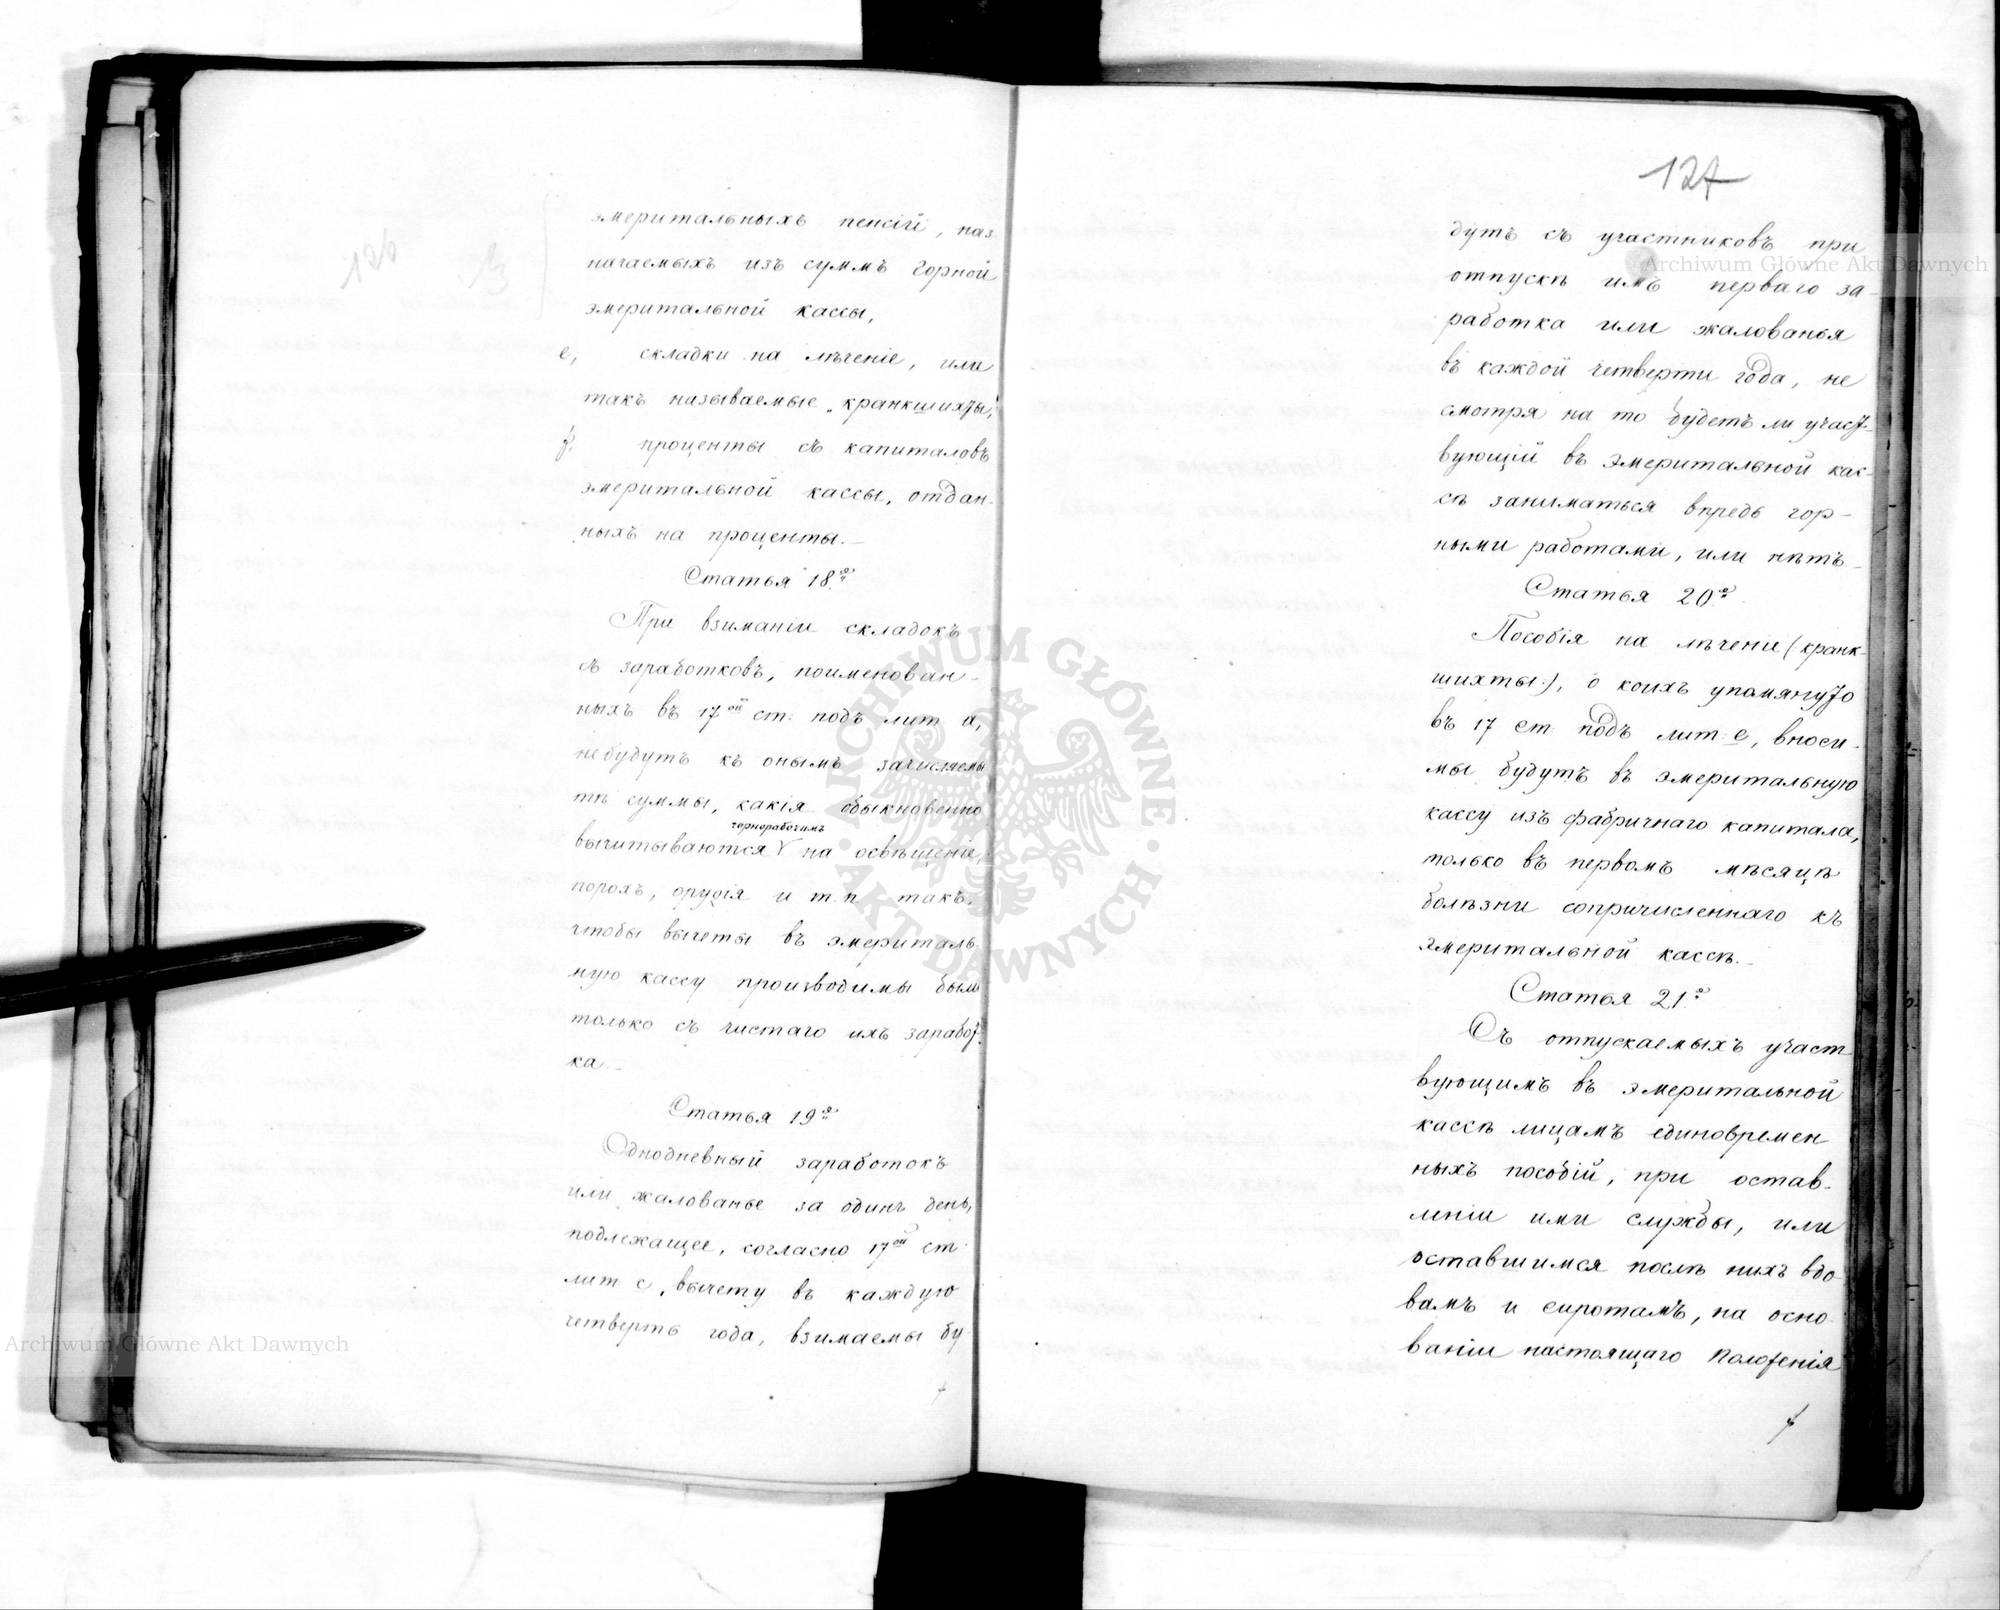 эмеритальныхъ пенсій, наз-
начаемыхъ изъ суммъ Горной
эмеритальной кассы,
е, складки на лѣченіе, или
такъ называемые „кранкшихты,"
f. проценты съ капиталовъ
эмеритальной кассы, отдан-
ныхъ на проценты.
Статья 18.
При взиманіи складокъ
съ заработковъ, поименован-
ныхъ въ 17ой ст: подъ лит а,
не будутъ къ онымъ зачисляемы
тѣ суммы, какія обыкновенно
чернорабочимъ
вычитываются на освѣщеніе,
порохъ, орудія и т. п. такъ,
чтобы вычеты въ эмериталь-
ную кассу производимы были
только съ чистаго ихъ заработ-
ка.
Статья 19
Однодневный заработокъ
или жалованье за одинъ день,
подлежащее, согласно 17ой ст
лит с, вычету въ каждую
четверть года, взимаемы бу-
127
дутъ съ участниковъ при
отпускѣ имъ перваго за-
работка или жалованья
въ каждой четверти года, не
смотря на то будетъ ли участ-
вующій въ эмеритальной кас-
сѣ заниматься впредь гор-
ными работами, или нѣтъ.
Статья 20.
Пособія на лѣченіе (:кранк-
шихты:), о коихъ упомянуто
въ 17 ст подъ лит: е, вноси-
мы будутъ въ эмеритальную
кассу изъ фабричнаго капитала,
только въ первомъ мѣсяцѣ
болѣзни сопричисленнаго къ
эмеритальной кассѣ.
Статья 21.
Съ отпускаемыхъ участ
вующимъ въ эмеритальной
кассѣ лицамъ единовремен
ныхъ пособій, при остав-
леніи ими службы, или
оставшимся послѣ нихъ вдо
вамъ и сиротамъ, на осно-
ваніи настоящаго Положенія
Archiwum Główne Akt Dawnych
ARCHIWUM GŁÓWNE · AKT DAWNYCH ·
Archiwum Główne Akt Dawnych